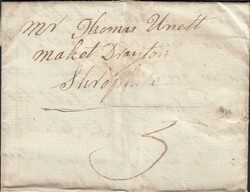 Mr Thomas Unett
maket Drayton
Shropshire
3